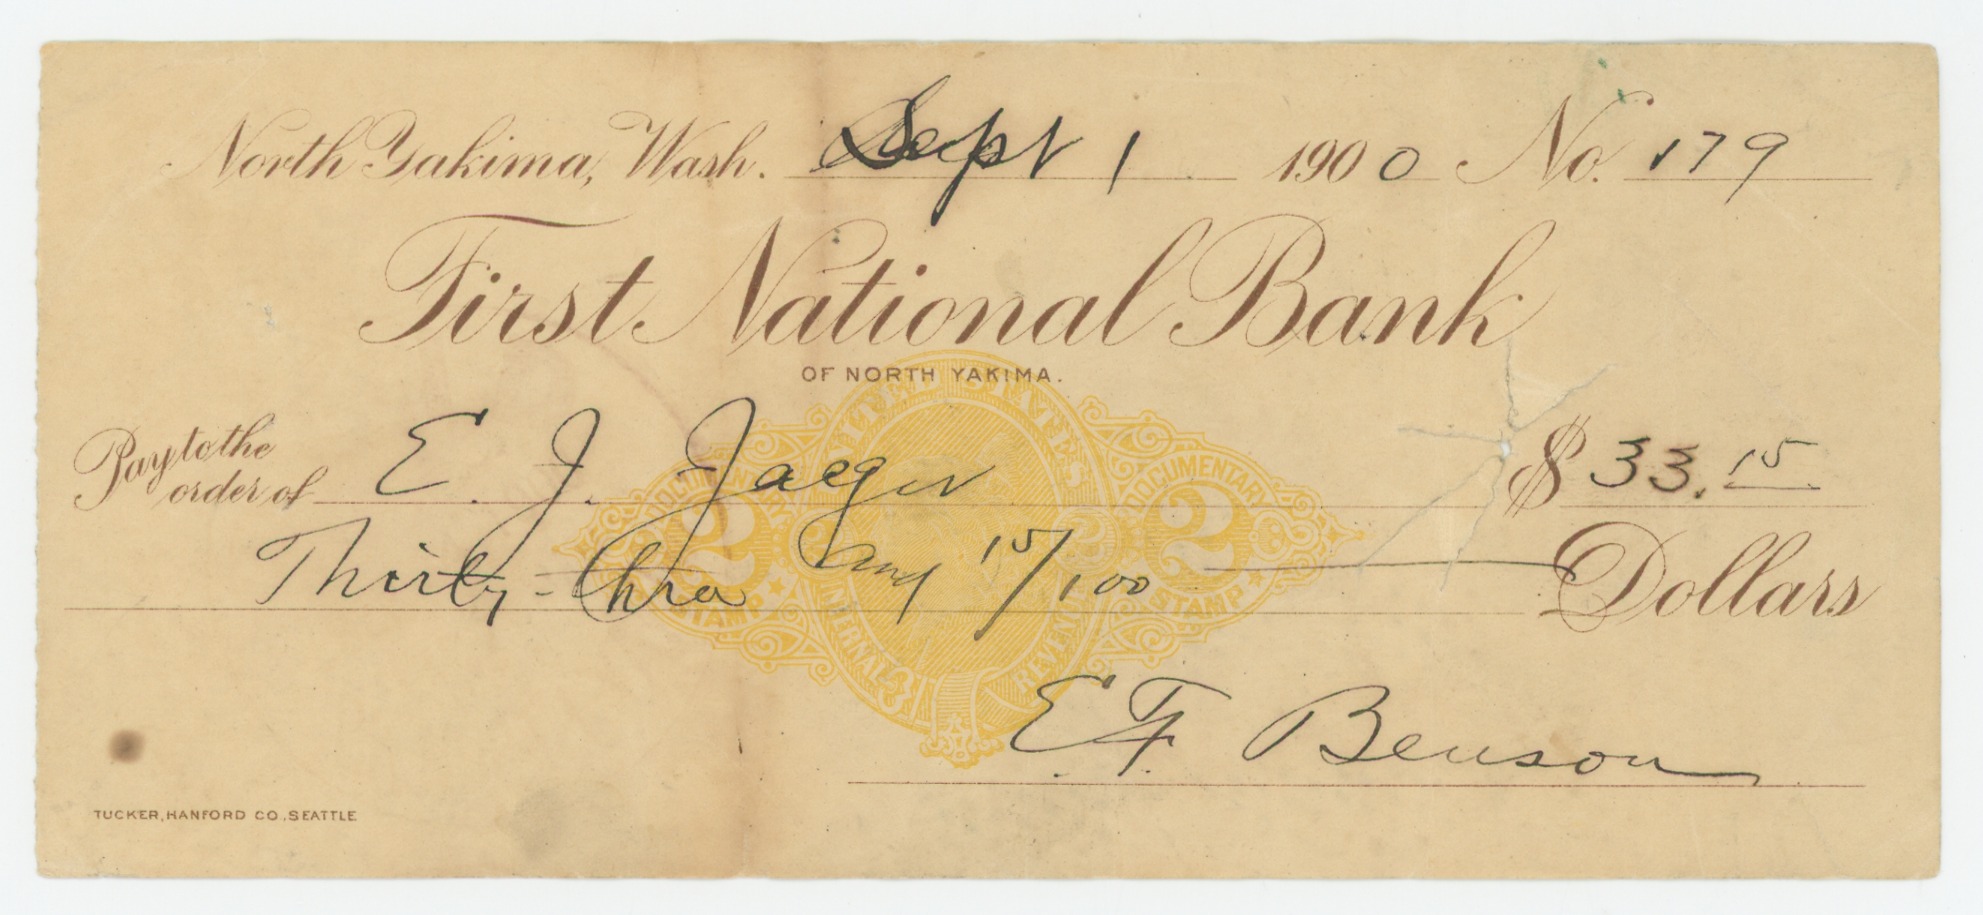 North Yakima, Wash. Sept 1 1900 No. 179
First National Bank
OF NORTH YAKIMA.
Pay to the order of E. J. Jaeger $33.15
Thirty-three and 15/100 Dollars
UNITED STATES
DOCUMENTARY 2 STAMP
DOCUMENTARY 2 STAMP
INTERNAL REVENUE
E. F. Benson
TUCKER, HANFORD CO. SEATTLE